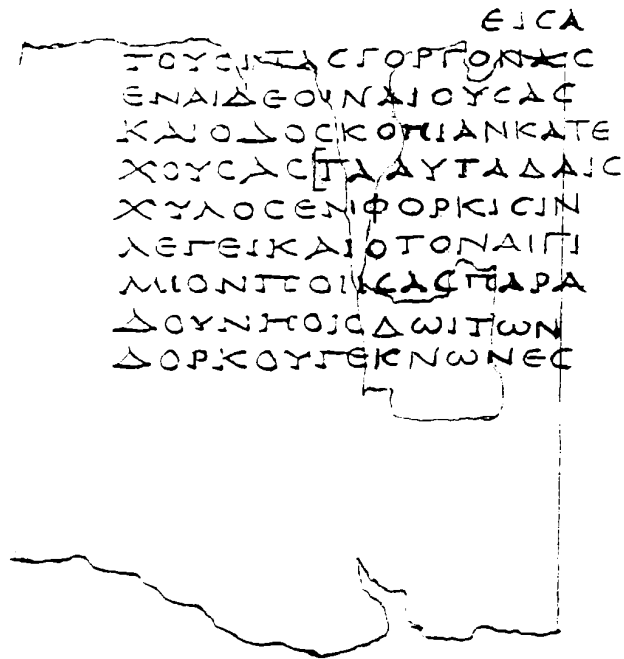 ΕΙϹΑ
ΤΟΥϹΙΤΑϹΓΟΡΓΟΝΑϹ
ΕΝΑΙΔΕΟΙΝΑΙΟΥϹΑϹ
ΚΑΙΟΔΟϹΚΟΠΙΑΝΚΑΤΕ
ΧΟΥϹΑϹ[ΤΑΑΥΤΑΔΑΙϹ
ΧΥΛΟϹΕΝΙΦΟΡΚΙϹΙΝ
ΛΕΓΕΙΚΑΙΟΤΟΝΑΙΓΙ
ΜΙΟΝΠΟΙΗϹΑϹΠΑΡΑ
ΔΟΥΝΠΟΙϹΔΩΙΤΩΝ
ΔΟΡΚΟΥΓΕΚΝΩΝΕϹ